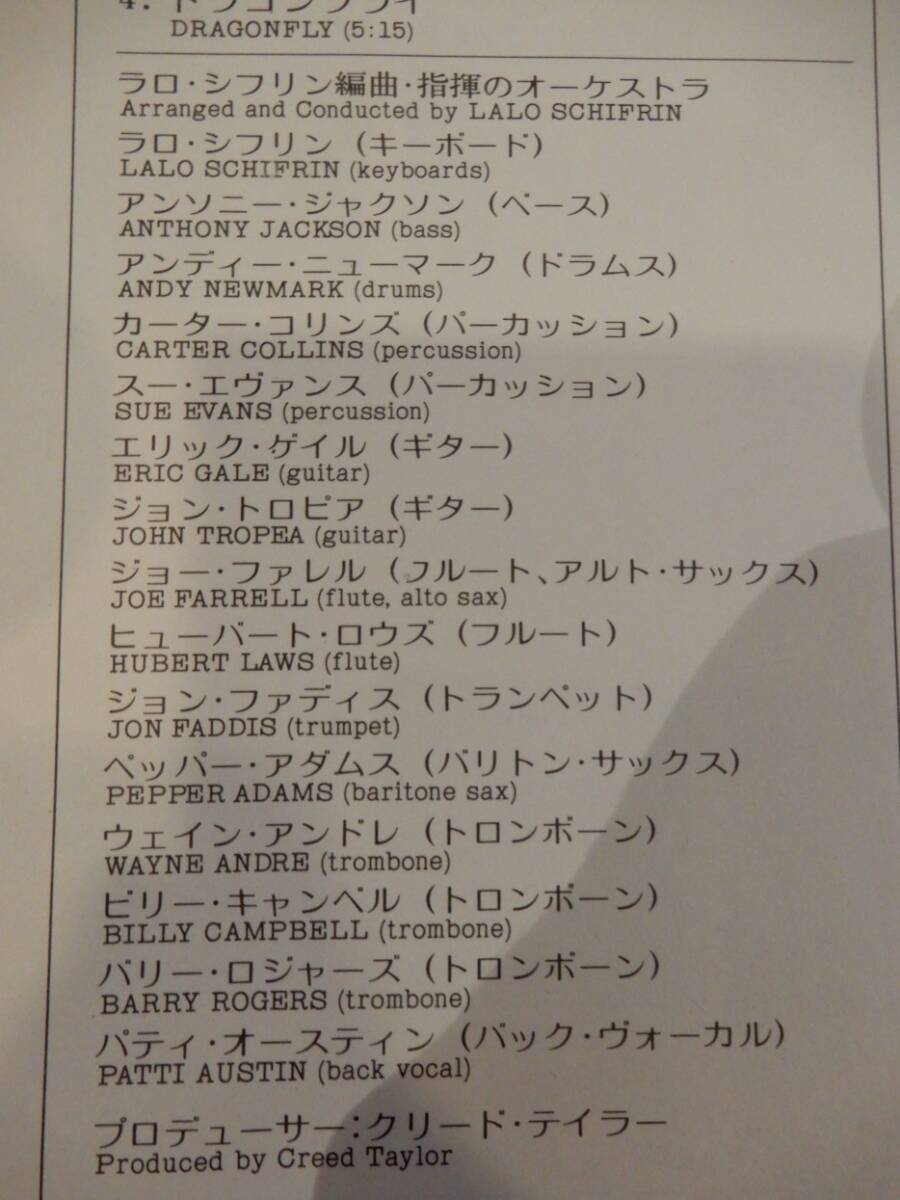 4. ドラゴンフライ
DRAGONFLY (5:15)
ラロ・シフリン編曲・指揮のオーケストラ
Arranged and Conducted by LALO SCHIFRIN
ラロ・シフリン (キーボード)
LALO SCHIFRIN (keyboards)
アンソニー・ジャクソン (ベース)
ANTHONY JACKSON (bass)
アンディー・ニューマーク (ドラムス)
ANDY NEWMARK (drums)
カーター・コリンズ (パーカッション)
CARTER COLLINS (percussion)
スー・エヴァンス (パーカッション)
SUE EVANS (percussion)
エリック・ゲイル (ギター)
ERIC GALE (guitar)
ジョン・トロピア (ギター)
JOHN TROPEA (guitar)
ジョー・ファレル (フルート、アルト・サックス)
JOE FARRELL (flute, alto sax)
ヒューバート・ロウズ (フルート)
HUBERT LAWS (flute)
ジョン・ファディス (トランペット)
JON FADDIS (trumpet)
ペッパー・アダムス (バリトン・サックス)
PEPPER ADAMS (baritone sax)
ウェイン・アンドレ (トロンボーン)
WAYNE ANDRE (trombone)
ビリー・キャンベル (トロンボーン)
BILLY CAMPBELL (trombone)
バリー・ロジャーズ (トロンボーン)
BARRY ROGERS (trombone)
パティ・オースティン (バック・ヴォーカル)
PATTI AUSTIN (back vocal)
プロデューサー:クリード・テイラー
Produced by Creed Taylor